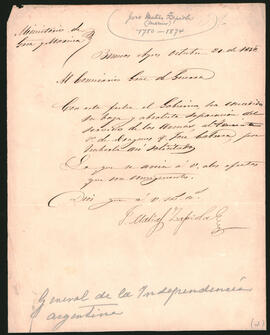 José Matías Zapiola
(marino)
1780 - 1874
Ministerio de
Guerra y Marina
Buenos Ayres Octubre 21 de
Al Comisario Gral de Guerra
Con esta fecha el Gobierno ha concedido
su baja y absoluta separacion del
servicio de las Armas, al
D. José Cabrera, por
haberla así solicitado
Lo que se avisa á V. á los efectos
que son consiguientes.
Dios gue á V. ms. as.
J. Matias Zapiola
General de la Independencia
argentina